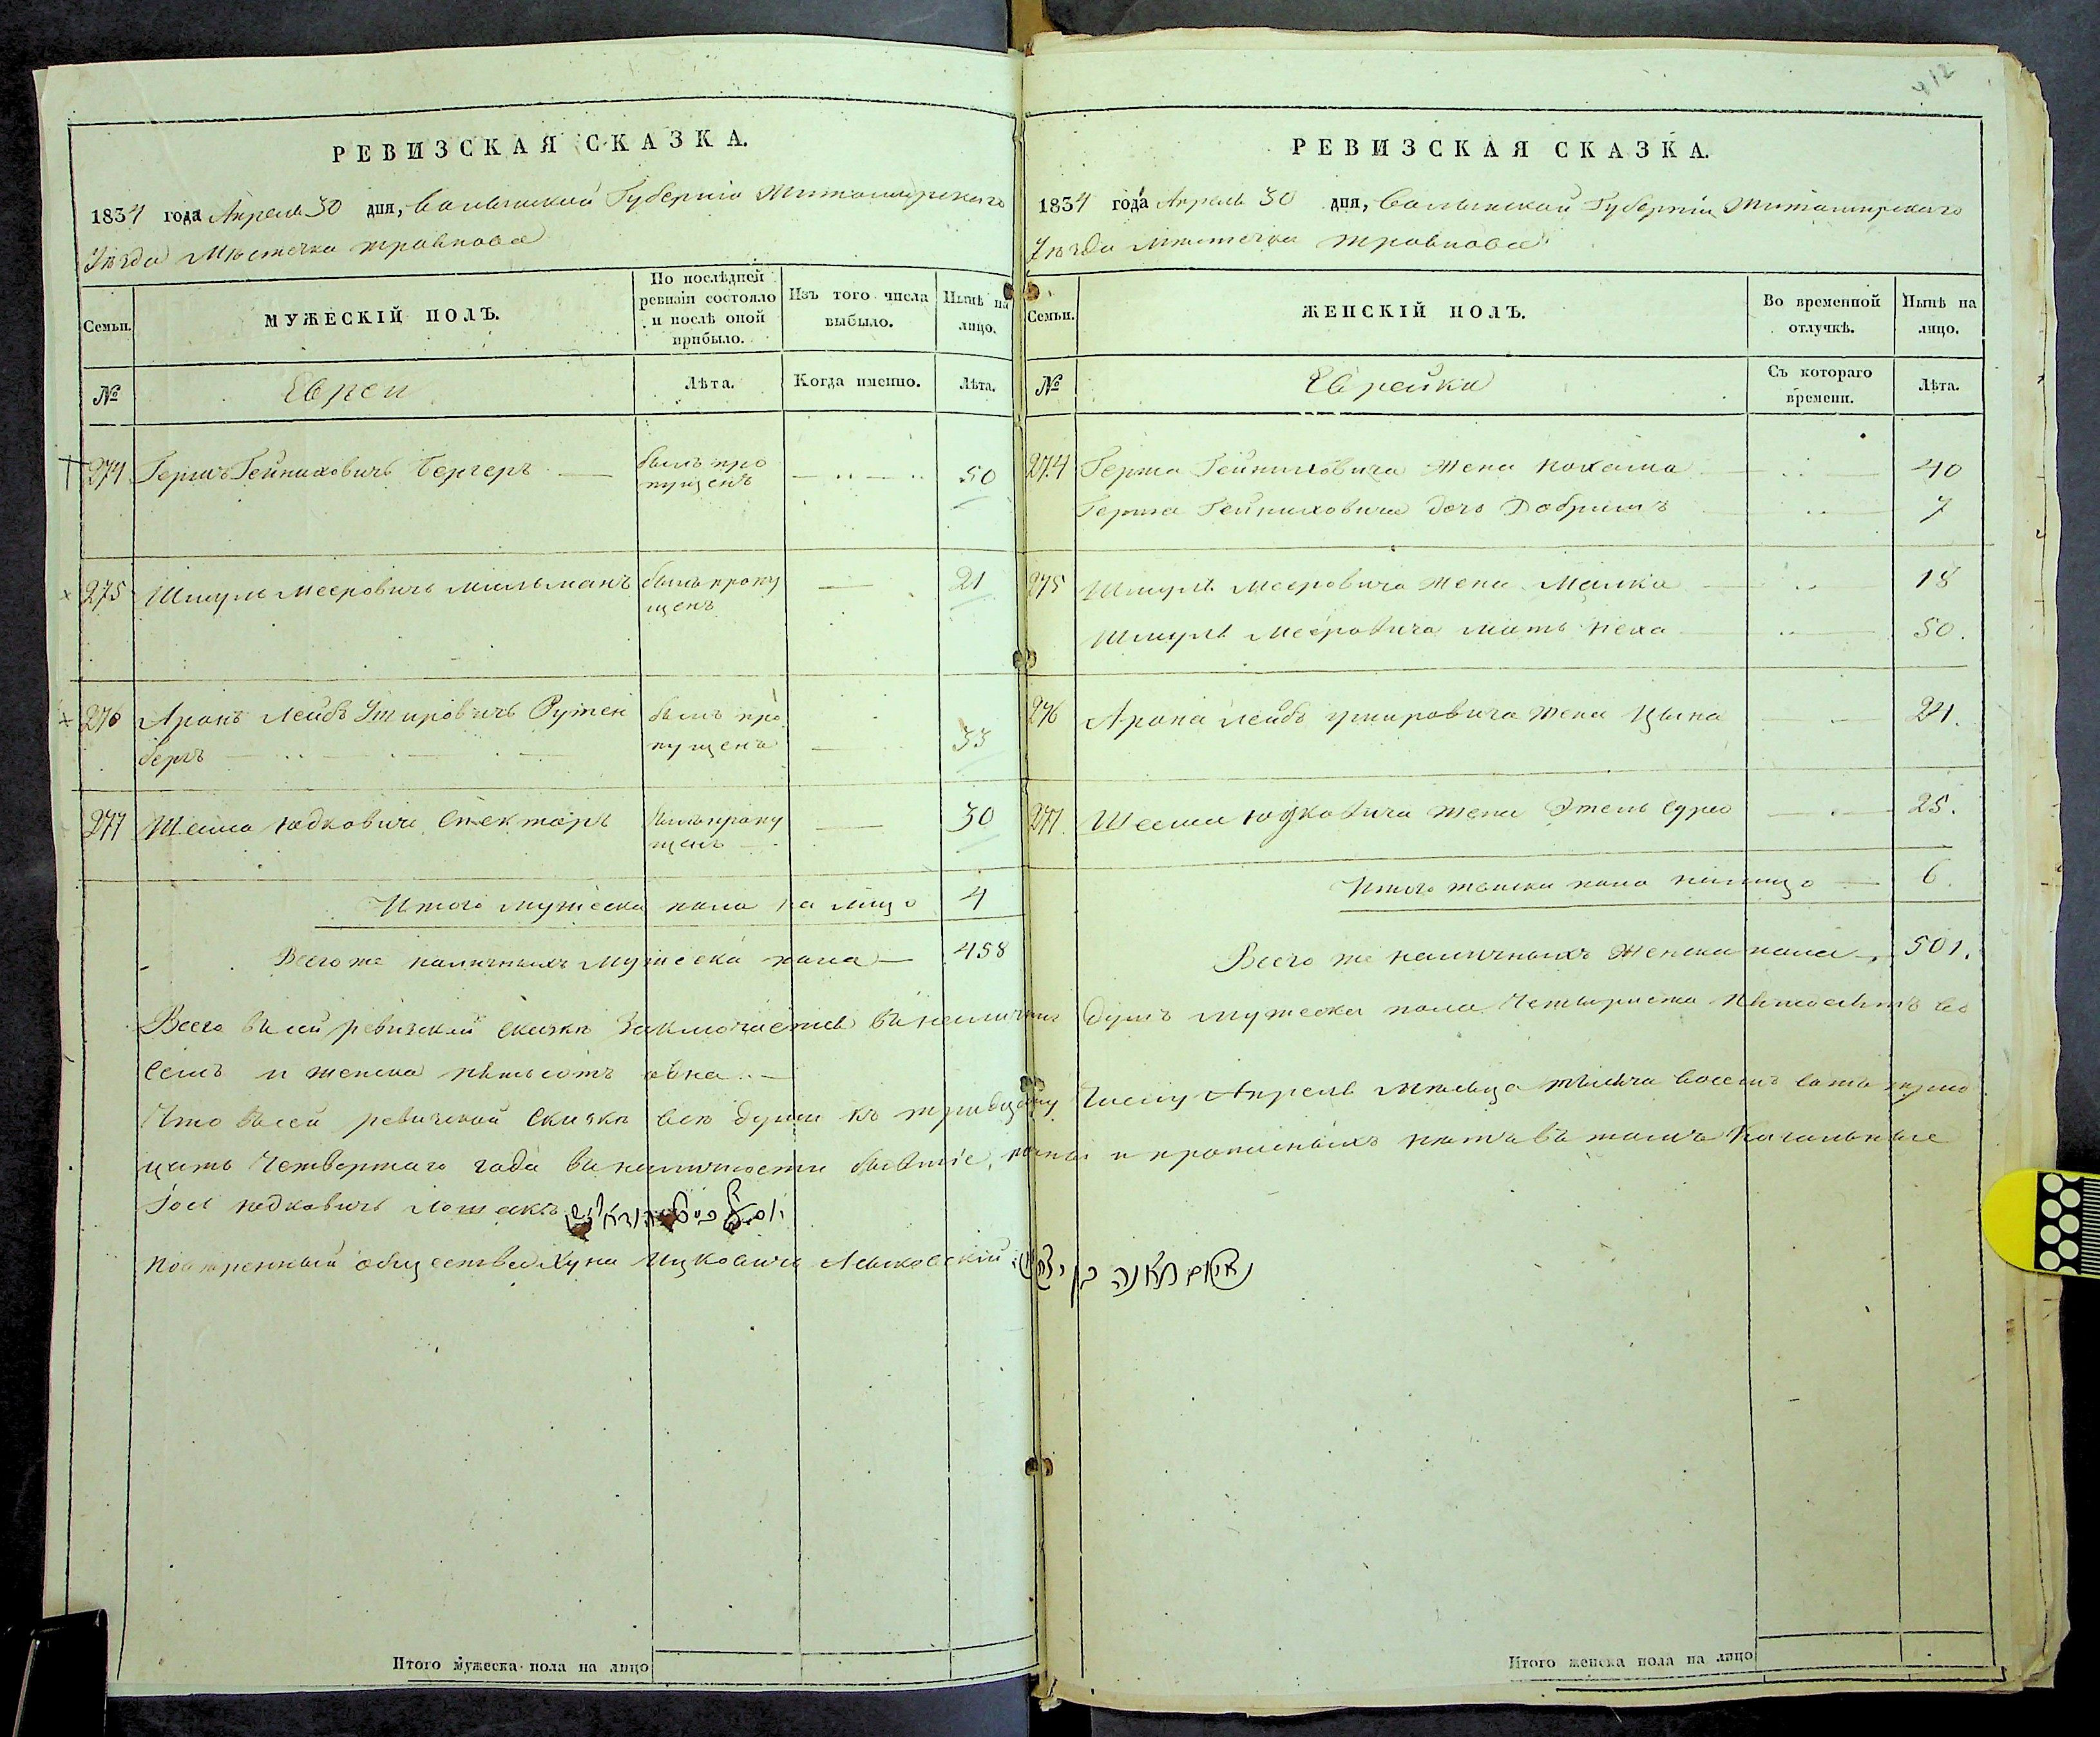 412
РЕВИЗСКАЯ СКАЗКА.
1834 года Апреля 30 дня, Волынской Губерніи Житомирскаго
Уезда Местечка Травнова
Семьи. МУЖЕСКІЙ ПОЛЪ. По послѣдней ревизіи состояло и послѣ оной прибыло. Изъ того числа выбыло. Нынѣ на лицо.
№ Евреи Лѣта. Когда именно. Лѣта.
274 Гершъ Гейниховичъ Бергеръ былъ про 50
пущенъ
275 Шмуль Мееровичъ Мильманъ былъ пропу 21
щенъ
276 Аронъ Лейбъ Ушировичъ Рутен былъ про
бергъ пущенъ 33
277 Шеина Юдковичъ Спекторъ былъ пропу 30
щенъ
Итого мужеска пола на лицо 4
Всего же наличныхъ мужеска пола 458
РЕВИЗСКАЯ СКАЗКА.
1834 года Апреля 30 дня, Волынской Губерніи Житомирскаго
Уезда Местечка Травнова
Семьи. ЖЕНСКІЙ ПОЛЪ. Во временной отлучкѣ. Нынѣ на лицо.
№ Еврейки Съ котораго времени. Лѣта.
274 Герша Гейниховича жена Нохама 40
Герша Гейниховича дочь Добришъ 7
275 Шмуля Мееровича жена Малка 18
Шмуля Мееровича мать Неха 50.
276 Арона Лейбъ Ушировича жена Цыпа 24.
277 Шеина Юдковича жена Этель Сура 25.
Итого женска пола налицо 6.
Всего же наличныхъ женска пола 501.
Всего въ сей ревизской сказке заключается въ наличии душъ мужеска пола четыреста пятьдесятъ во
семъ и женска пятьсотъ одна.
Что въ сей ревизской сказке все души къ тридцатому числу Апреля месяца тысяча восемь сотъ трид
цать четвертаго года въ наличности бывшіе, и прописныхъ нетъ въ томъ Кагальные
Іосъ Юдковичъ
Поверенный общества Хуна Ицковичъ
נאום בן
Итого мужеска пола на лицо
Итого женска пола на лицо